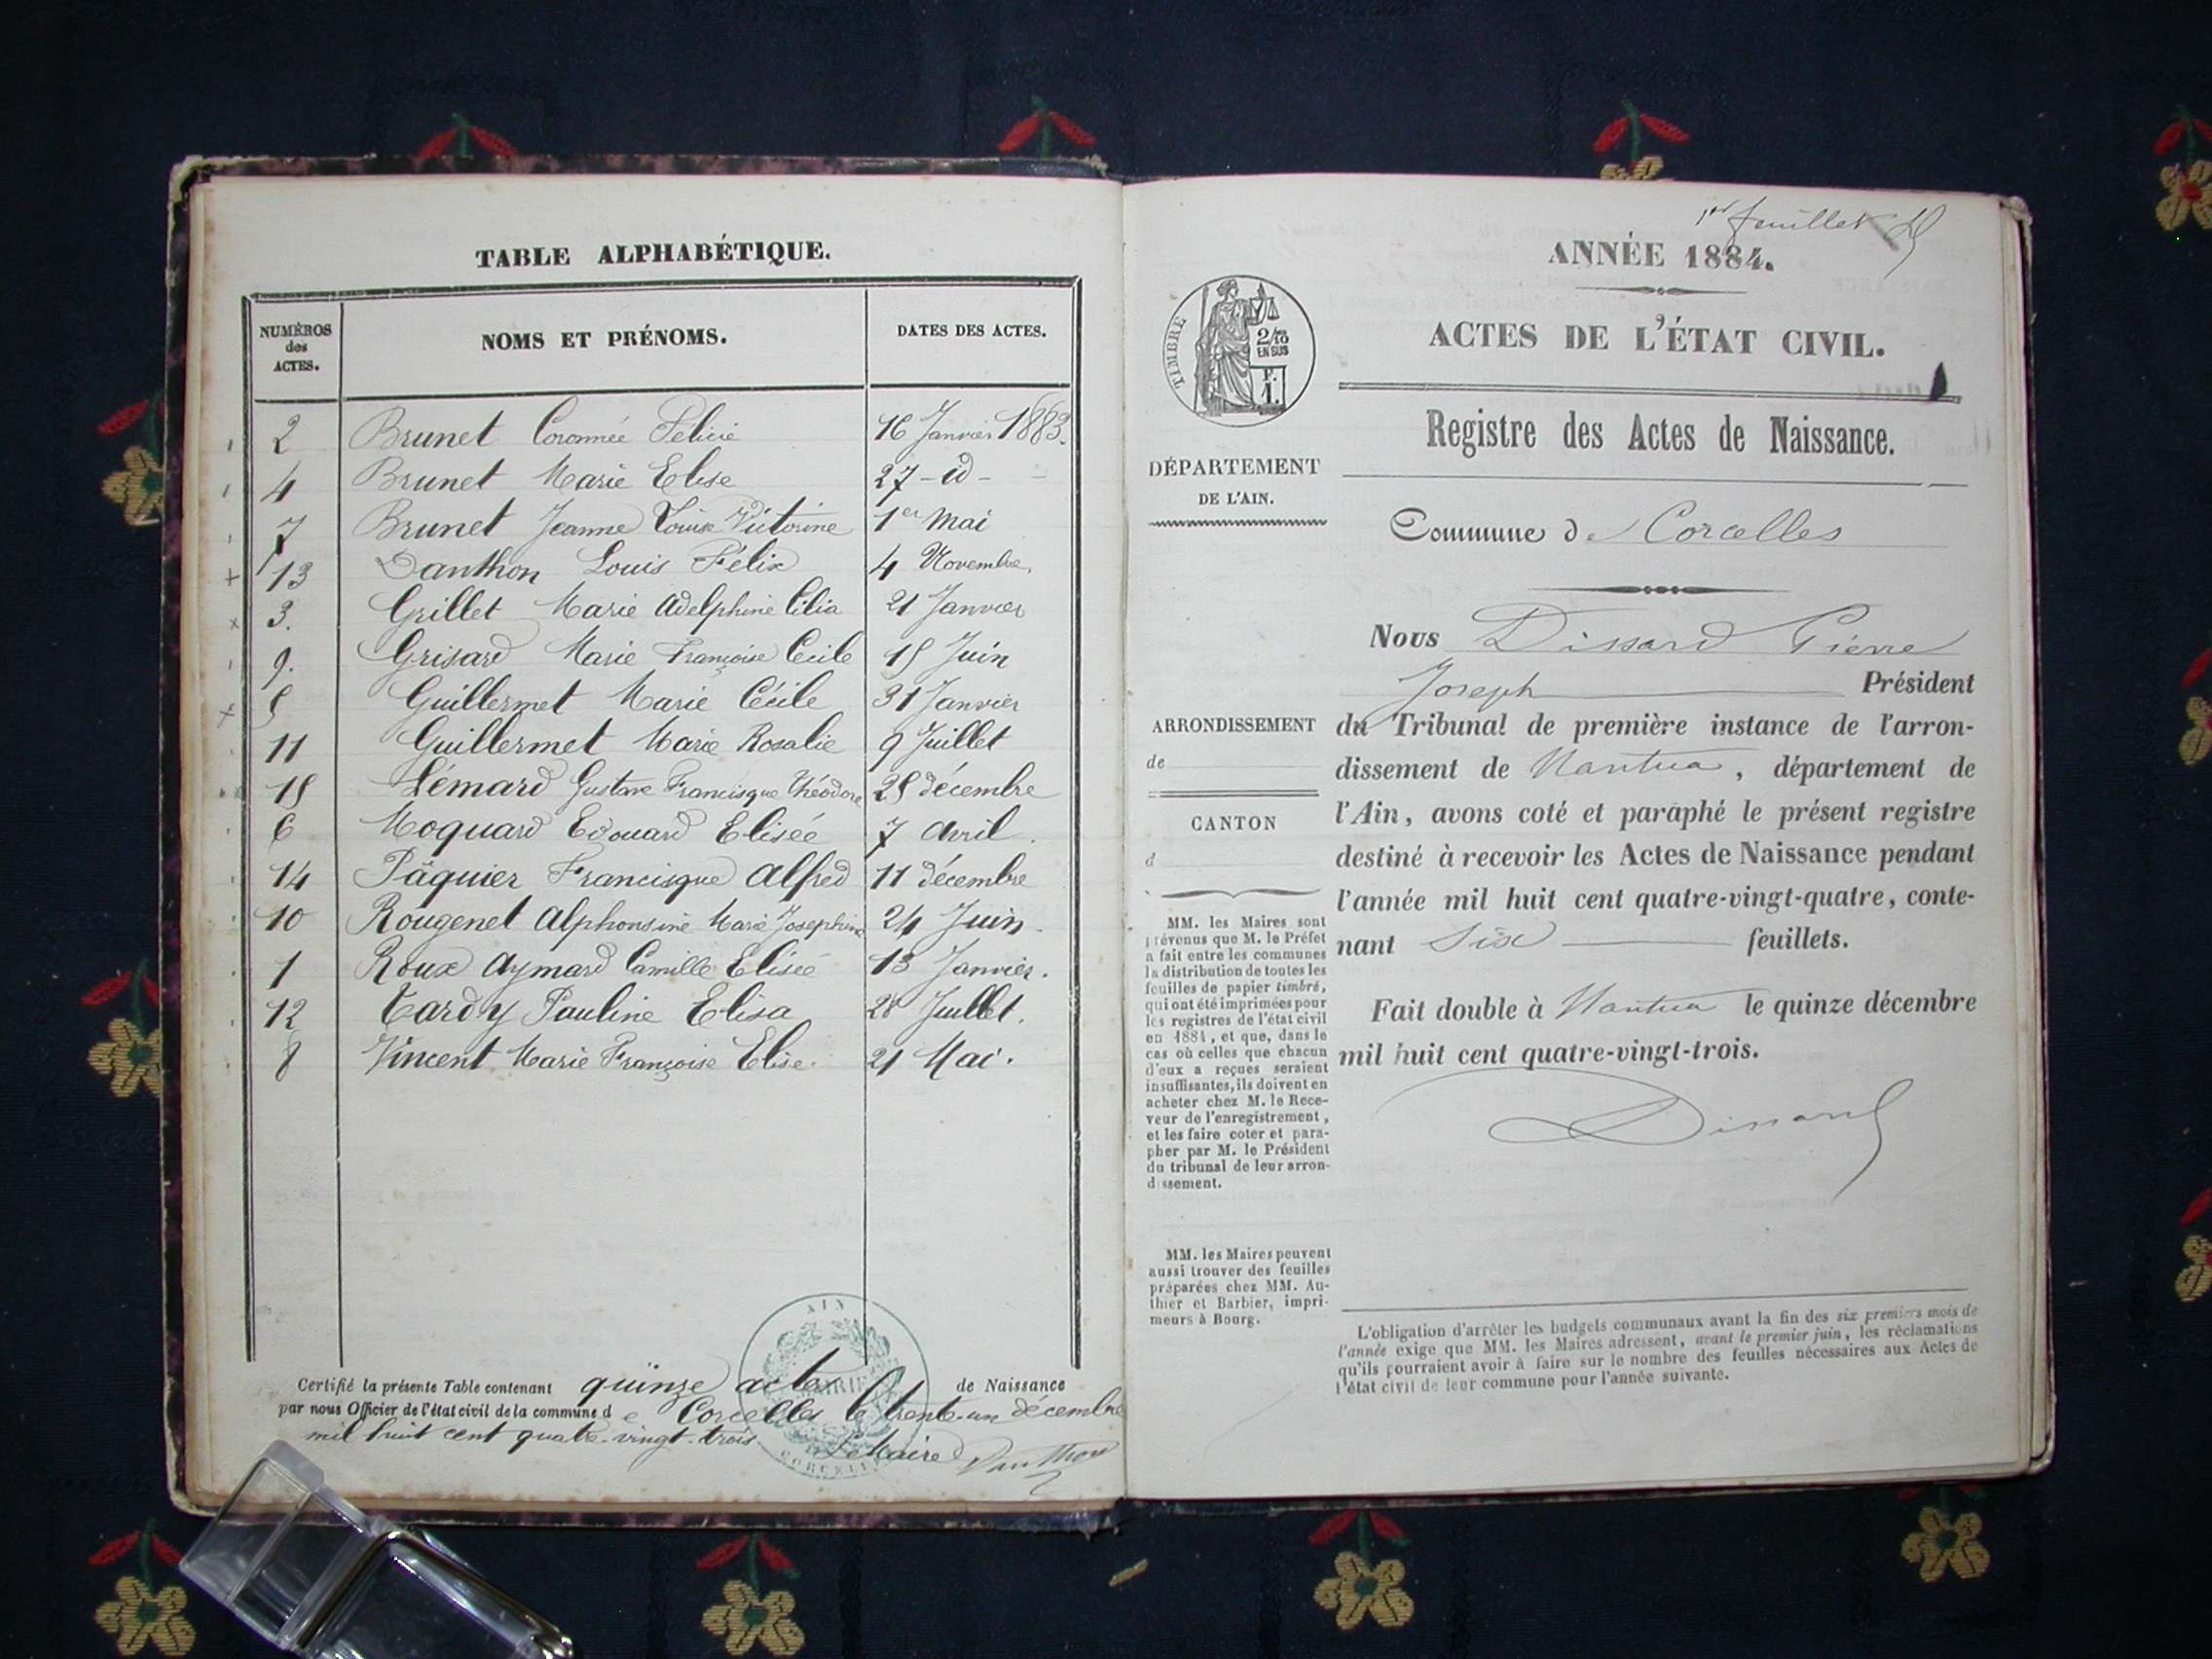 TABLE ALPHABÉTIQUE.
NUMÉROS des ACTES. NOMS ET PRÉNOMS. DATES DES ACTES.
2 Brunet Coronnée Félicie 16 Janvier 1883.
4 Brunet Marie Elise 27 - id -
7 Brunet Jeanne Louise Victorine 1er Mai
13 Danthon Louis Félix 4 Novembre.
3. Grillet Marie Adelphine Cilia 21 Janvier
9. Grisard Marie Françoise Cécile 15 Juin
5 Guillermet Marie Cécile 31 Janvier
11 Guillermet Marie Rosalie 9 Juillet
15 Lémard Gustave Francisque Théodore 25 décembre
6 Moquard Edouard Elisée 7 Avril.
14 Pâquier Francisque Alfred 11 décembre
10 Rougenet Alphonsine Marie Joséphine 24 Juin.
1 Roux Aymard Camille Elisée 13 Janvier.
12 Tardy Pauline Elisa 28 Juillet.
8 Vincent Marie Françoise Elise. 21 Mai.
Certifié la présente Table contenant quinze actes de Naissance
par nous Officier de l'état civil de la commune de Corcelles le trente-un décembre
mil huit cent quatre-vingt-trois
Le Maire Danthon
AIN
MAIRIE
CORCELLES
1er feuillet
ANNÉE 1884.
ACTES DE L'ÉTAT CIVIL.
TIMBRE
2/10
EN SUS
F.
1.
Registre des Actes de Naissance.
DÉPARTEMENT
DE L'AIN.
Commune de Corcelles
Nous Dissard Pierre
Joseph Président
du Tribunal de première instance de l'arron-
dissement de Nantua, département de
l'Ain, avons coté et paraphé le présent registre
destiné à recevoir les Actes de Naissance pendant
l'année mil huit cent quatre-vingt-quatre, conte-
nant Six feuillets.
Fait double à Nantua le quinze décembre
mil huit cent quatre-vingt-trois.
Dissard
ARRONDISSEMENT
de
CANTON
d
MM. les Maires sont
prévenus que M. le Préfet
a fait entre les communes
la distribution de toutes les
feuilles de papier timbré,
qui ont été imprimées pour
les registres de l'état civil
en 1884, et que, dans le
cas où celles que chacun
d'eux a reçues seraient
insuffisantes, ils doivent en
acheter chez M. le Rece-
veur de l'enregistrement,
et les faire coter et para-
pher par M. le Président
du tribunal de leur arron-
dissement.
MM. les Maires peuvent
aussi trouver des feuilles
préparées chez MM. Au-
thier et Barbier, impri-
meurs à Bourg.
L'obligation d'arrêter les budgets communaux avant la fin des six premiers mois de
l'année exige que MM. les Maires adressent, avant le premier juin, les réclamations
qu'ils pourraient avoir à faire sur le nombre des feuilles nécessaires aux Actes de
l'état civil de leur commune pour l'année suivante.